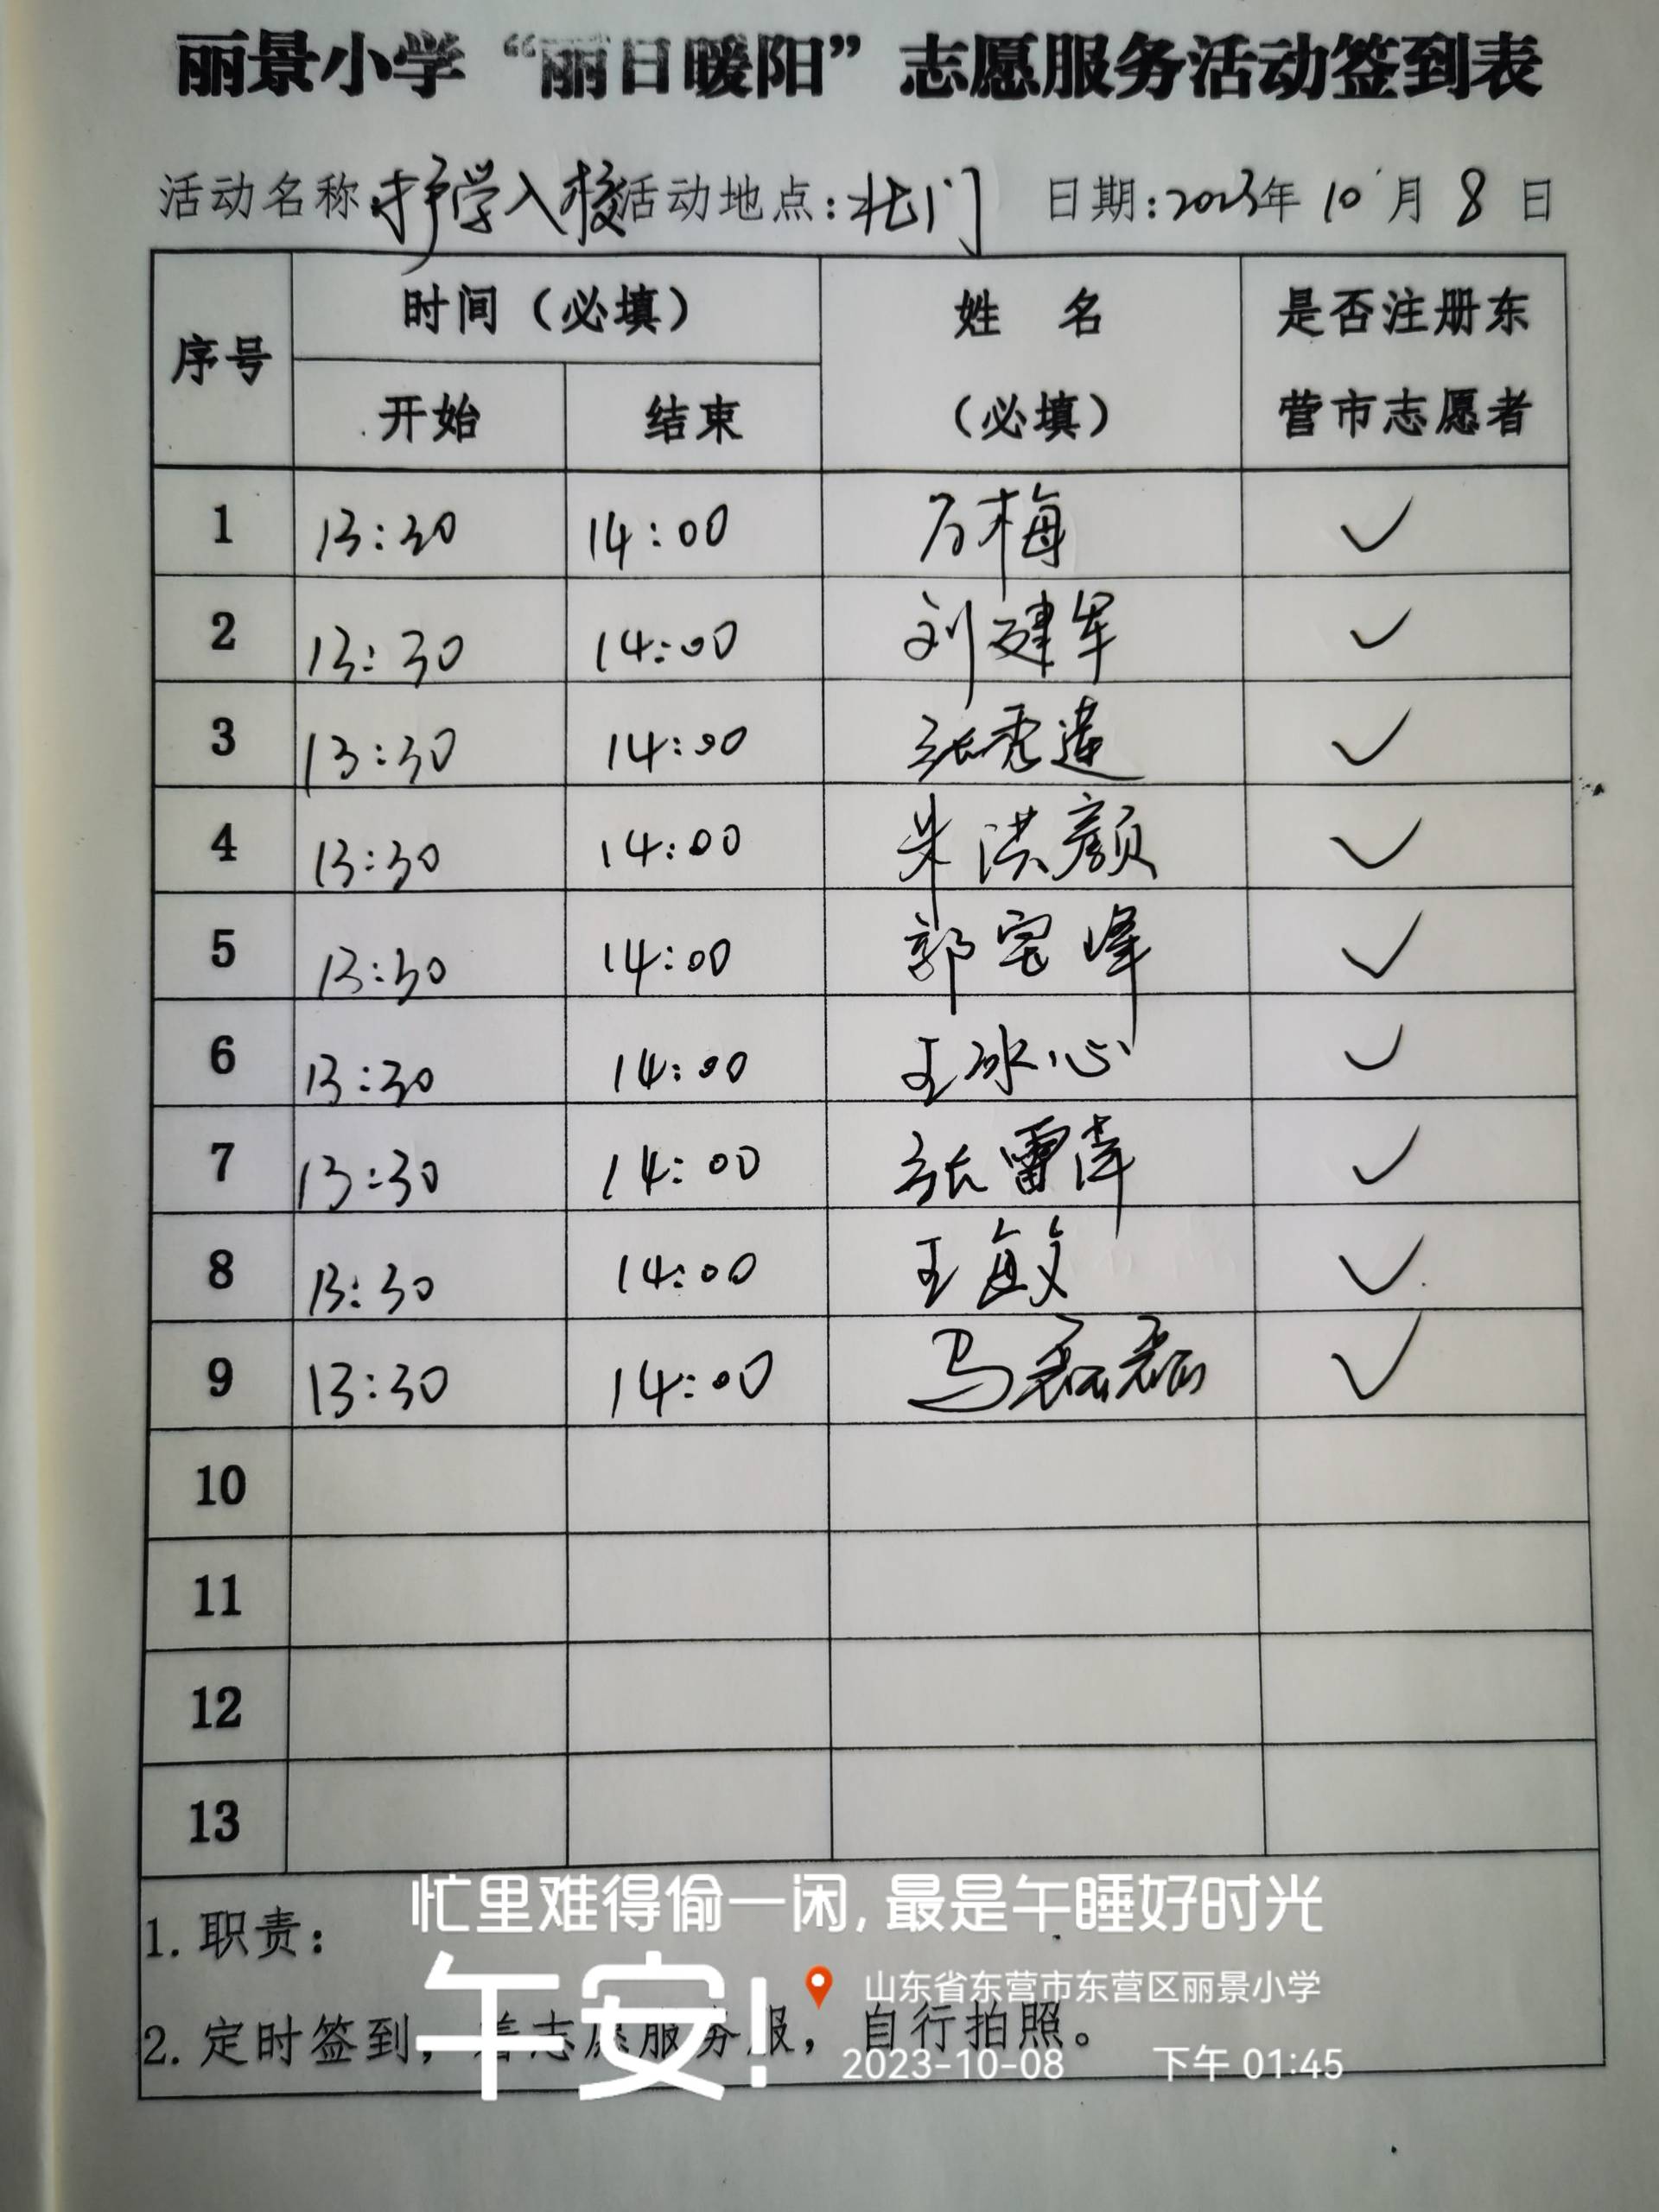 丽景小学“丽日暖阳”志愿服务活动签到表
活动名称 护学入校 活动地点:北门 日期:2023年10月8日
序号 时间（必填） 姓 名（必填） 是否注册东营市志愿者
开始 结束
1 13:30 14:00 万梅 ✓
2 13:30 14:00 刘建军 ✓
3 13:30 14:00 张秀莲 ✓
4 13:30 14:00 朱洪颜 ✓
5 13:30 14:00 郭宝峰 ✓
6 13:30 14:00 王冰心 ✓
7 13:30 14:00 张雷萍 ✓
8 13:30 14:00 王敏 ✓
9 13:30 14:00 马磊磊 ✓
10
11
12
13
忙里难得偷一闲,最是午睡好时光
1.职责:
午安!
山东省东营市东营区丽景小学
2.定时签到，着志愿服务服，自行拍照。
2023-10-08 下午 01:45